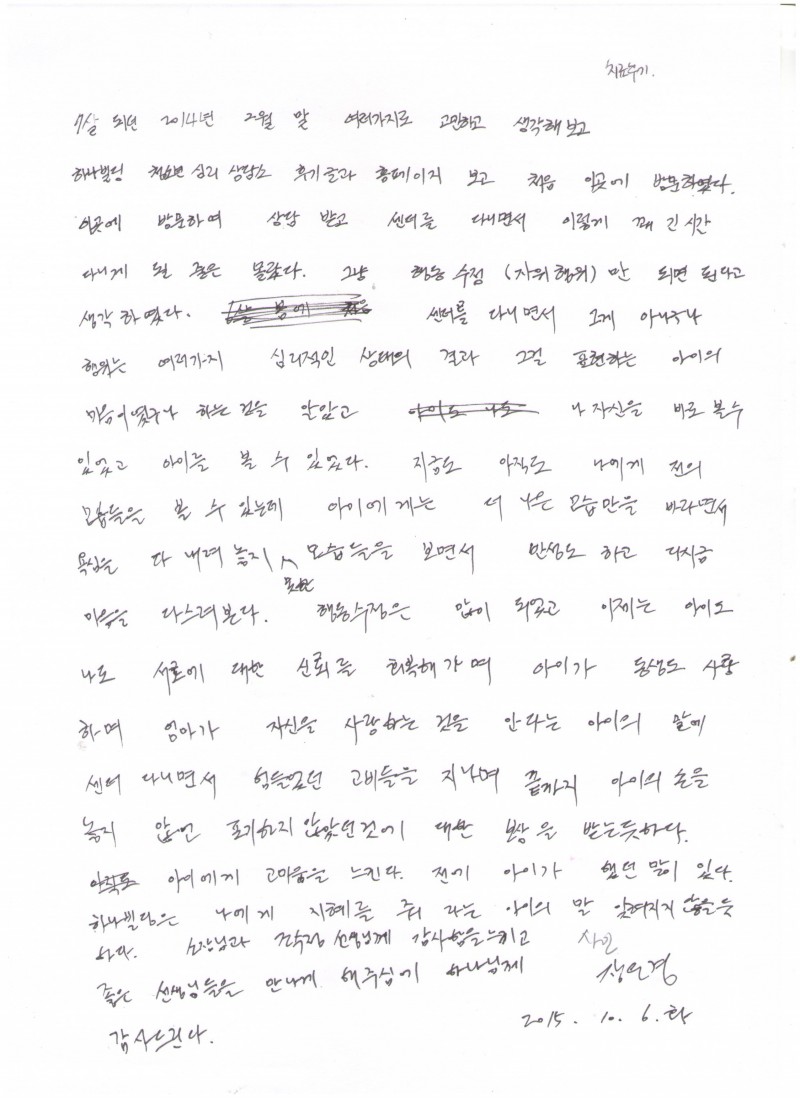 치료후기.
7살 되던 2014년 2월 말 여러가지로 고민하고 생각해보고
하나빌딩 청소년 심리 상담소 후기글과 홈페이지 보고 처음 이곳에 방문하였다.
이곳에 방문하여 상담 받고 센터를 다니면서 이렇게 꽤 긴 시간
다니게 될 줄은 몰랐다. 그냥 행동수정 (자위행위) 만 되면 된다고
생각 하였다. 센터를 다니면서 그게 아니구나
행위는 여러가지 심리적인 상태의 결과 그걸 표현하는 아이의
마음이였구나 하는 것을 알았고 나 자신을 바로 볼수
있었고 아이를 볼 수 있었다. 지금도 아직도 나에게 전의
모습들을 볼 수 있는데 아이에게는 더 나은 모습만을 바라면서
욕심을 다 내려 놓지 못한 모습들을 보면서 반성도 하고 다시금
마음을 다스려본다. 행동수정은 많이 되었고 이제는 아이도
나도 서로에 대한 신뢰를 회복해가며 아이가 동생도 사랑
하며 엄마가 자신을 사랑하는 것을 안다는 아이의 말에
센터 다니면서 힘들었던 고비들을 지나며 끝까지 아이의 손을
놓지 않언 포기하지 않았던것에 대한 보상을 받는듯하다.
아이에게 고마움을 느낀다. 전에 아이가 했던 말이 있다.
하나빌딩은 나에게 지혜를 줘 라는 아이의 말 잊혀지지 않을듯
하다. 소장님과 선생님께 감사함을느끼고
좋은 선생님들을 만나게 해주심에 하나님께
감사드린다.
2015. 10. 6. 화